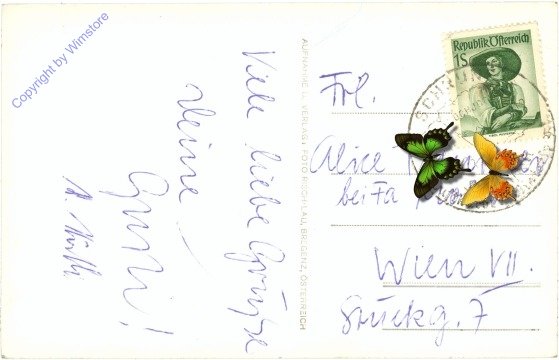 Copyright by Wimstore
Viele liebe Grüsse
Deine
Gusti!
AUFNAHME U. VERLAG: FOTO RISCH-LAU, BREGENZ, ÖSTERREICH
Republik Österreich
1S
SCHRUNS
Frl.
Alice
bei Fa
Wien VII.
Stuckg. 7